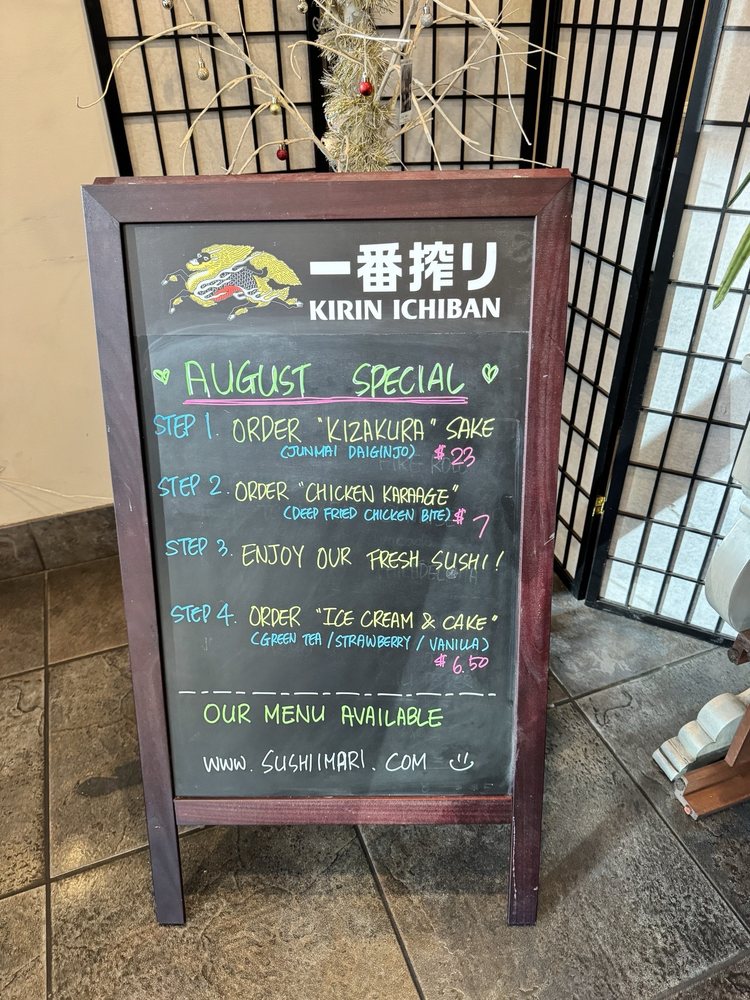 一番搾り
KIRIN ICHIBAN
AUGUST SPECIAL
STEP 1. ORDER "KIZAKURA" SAKE
(JUNMAI DAIGINJO) $23
STEP 2. ORDER "CHICKEN KARAAGE"
(DEEP FRIED CHICKEN BITE) $7
STEP 3. ENJOY OUR FRESH SUSHI!
STEP 4. ORDER "ICE CREAM & CAKE"
(GREEN TEA / STRAWBERRY / VANILLA)
$6.50
OUR MENU AVAILABLE
WWW.SUSHIIMARI.COM